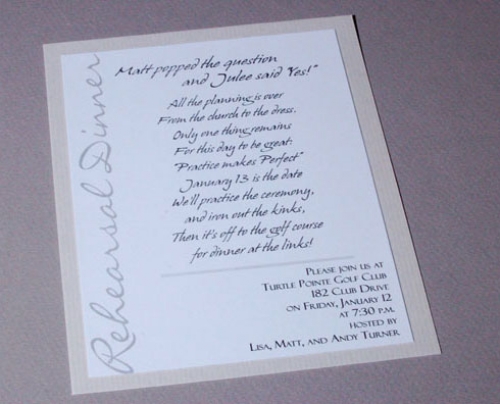 Rehearsal Dinner
Matt popped the question
and Julee said Yes!"
All the planning is over
From the church to the dress.
Only one thing remains
For this day to be great:
"Practice makes Perfect"
January 13 is the date
We'll practice the ceremony,
and iron out the kinks,
Then it's off to the golf course
for dinner at the links!
Please join us at
Turtle Pointe Golf Club
182 Club Drive
on Friday, January 12
at 7:30 p.m.
hosted by
Lisa, Matt, and Andy Turner